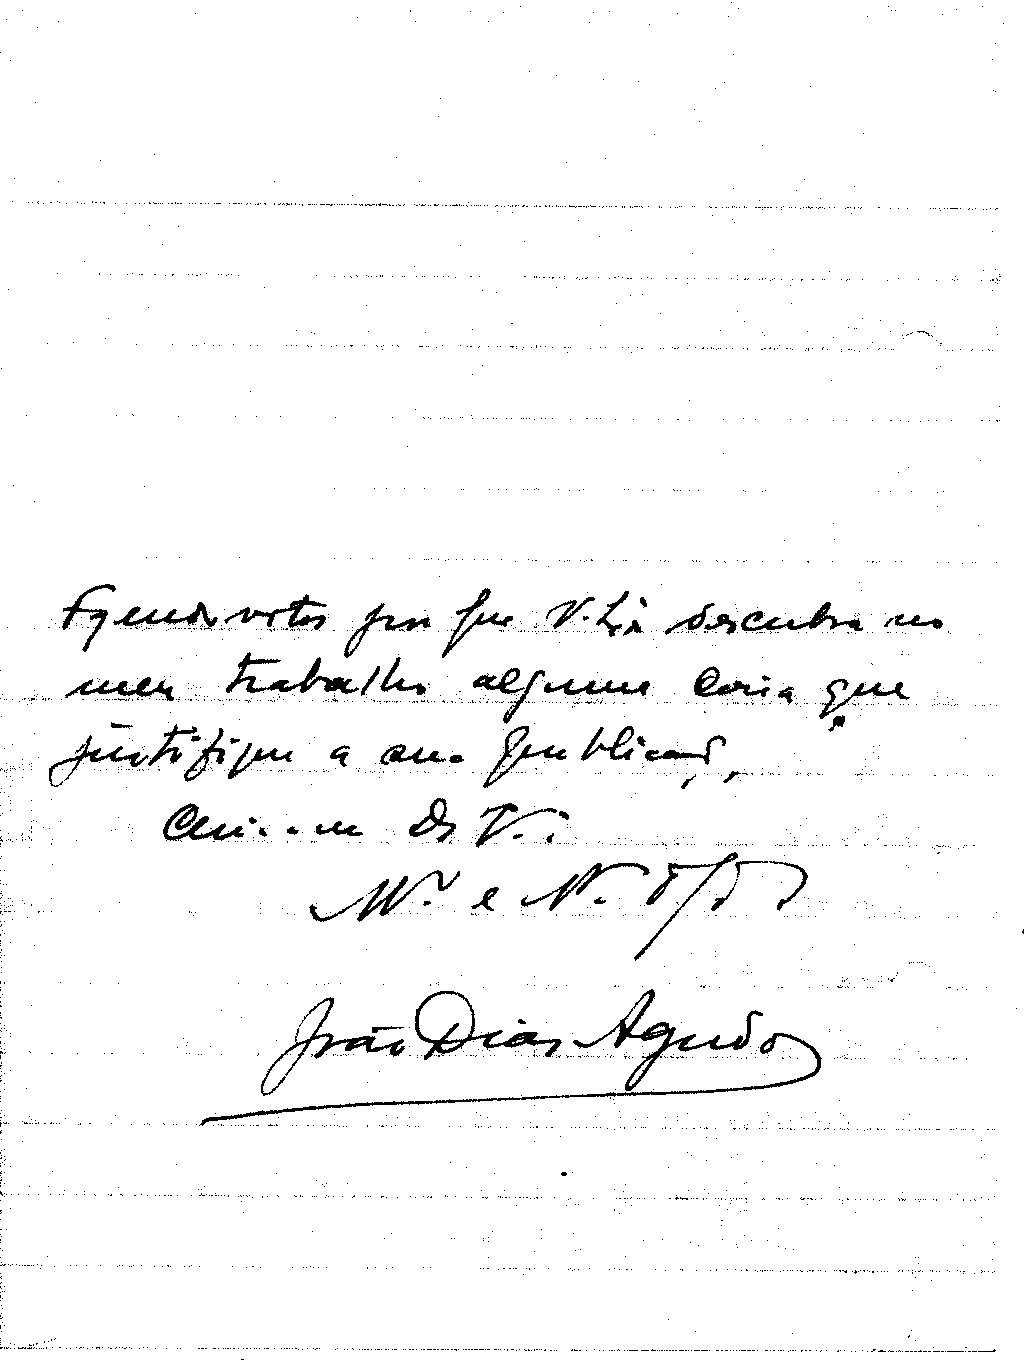 Fazendo votos por que V. Ex.ª descubra no
meu trabalho alguma coisa que
justifique a sua publicação,
de V.
M.to e N.
João Dias Agudo